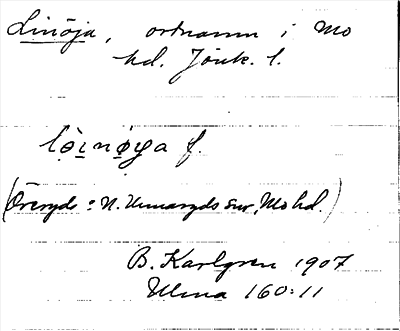 Linöja, ortnamn i Mo
hd. Jönk. l.
lo̤i̤nø̤ya f.
(Öreryds o N. Unnaryds snr, Mo hd.)
B. Karlgren 1907
Ulma 160:11